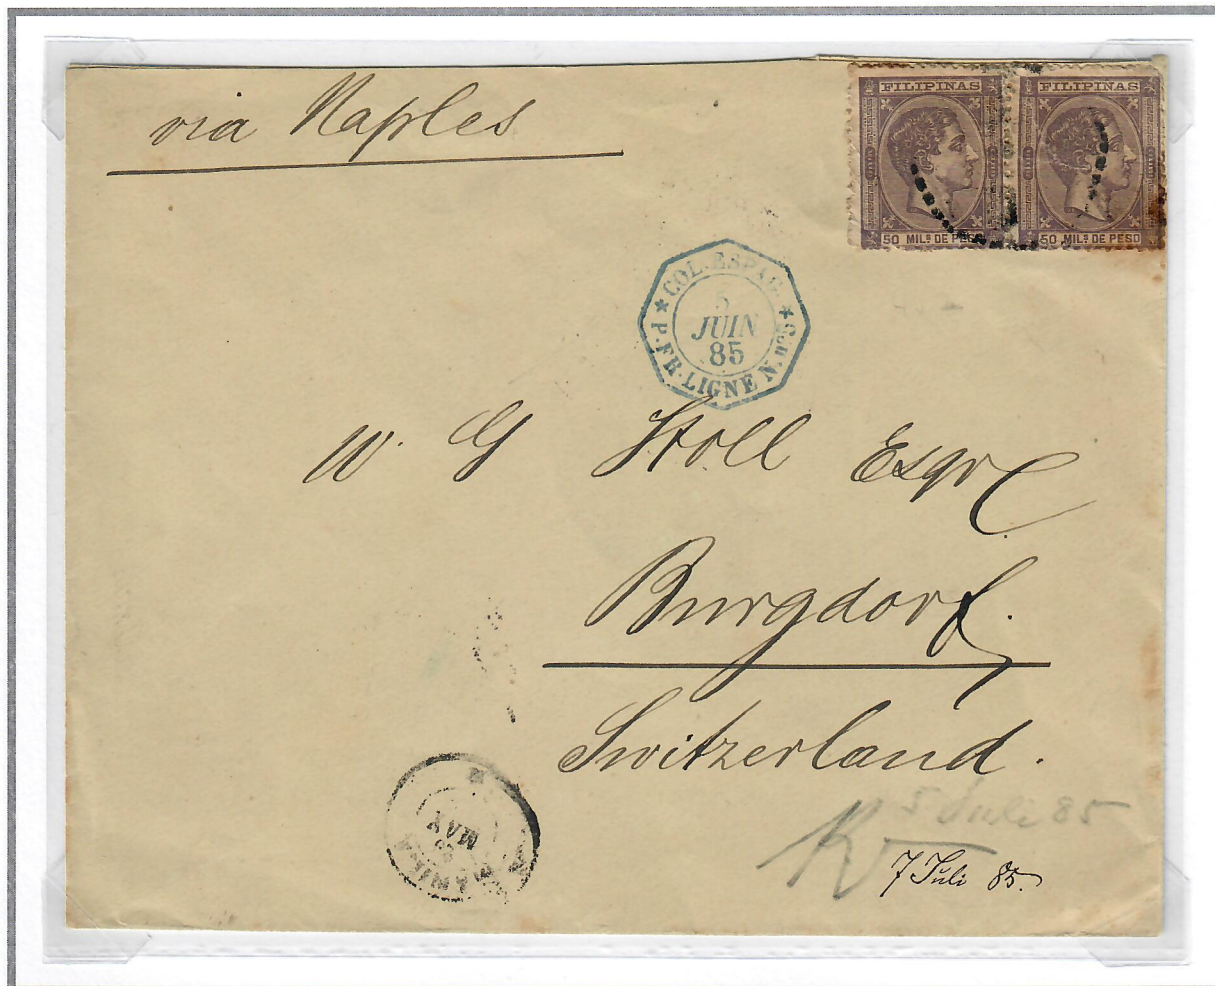 via Naples
FILIPINAS
50 MIL.S DE PESO
FILIPINAS
50 MIL.S DE PESO
COL. ESPAG.
5
JUIN
85
* P. FR. LIGNE N. nº5 *
W. G Stoll Esqre
Burgdorf.
Switzerland.
MAY
MANILA
R 5 Juli 85
7 Juli 85.